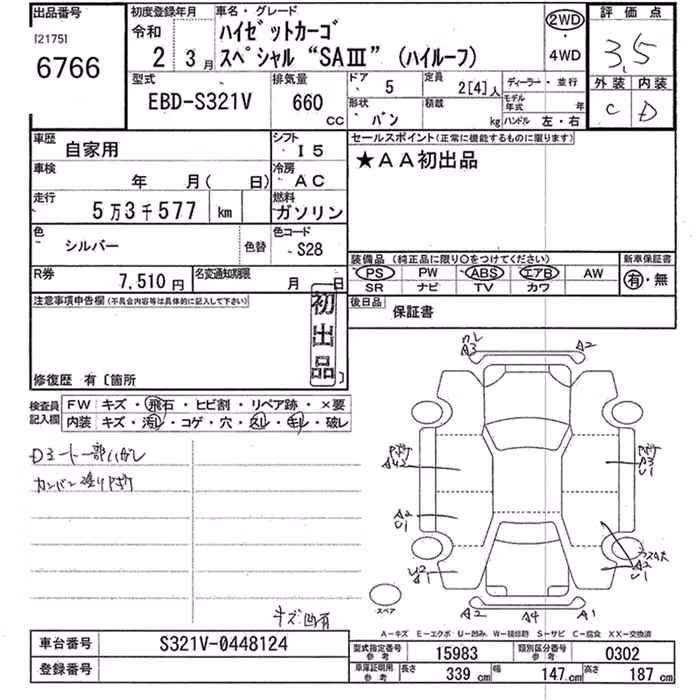 出品番号
[2175]
6766
初度登録年月
令和
2 3月
車名・グレード
ハイゼットカーゴ
スペシャル "SAⅢ" (ハイルーフ)
2WD
・
4WD
評価点
3.5
外装 内装
C D
型式
EBD-S321V
排気量
660
CC
ドア
5
定員
2[4]人
ディーラー・並行
形状
バン
積載
kg
モデル年式 年
ハンドル 左・右
車歴
自家用
シフト
I5
車検
年 月( 日)
冷房
AC
走行
5万3千577 km
燃料
ガソリン
色
シルバー
色替
色コード
S28
R券
7,510円
名変通知期限
月 日
セールスポイント(正常に機能するものに限ります)
★AA初出品
装備品(純正品に限り〇をつけてください)
PS PW ABS エアB AW
SR ナビ TV カワ
新車保証書
有・無
後日品
保証書
注意事項申告欄(不具合内容等は具体的に記入して下さい)
初出品
修復歴 有〔箇所 〕
検査員記入欄
FW キズ・飛石・ヒビ割・リペア跡・×要
内装 キズ・汚れ・コゲ・穴・スレ・キレ・破レ
A3
A2
A3
U1
A2
U1
A2
U1
A2
A4
A1
スペア
A-キズ E-エクボ U-凹み W-補修跡 S-サビ C-腐食 XX-交換済
車台番号
S321V-0448124
登録番号
型式指定番号 参考
15983
類別区分番号 参考
0302
車庫証明用 参考
長さ 339 cm
幅 147 cm
高さ 187 cm